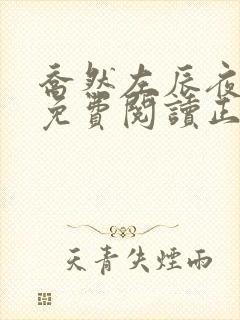 喬然左辰夜
免費閱讀正
天青失煙雨